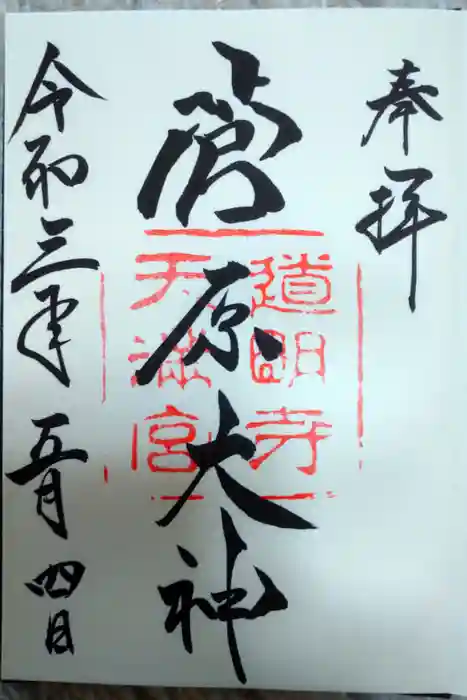 奉拝
道明寺
天満宮
菅原大神
令和三年 五月 四日